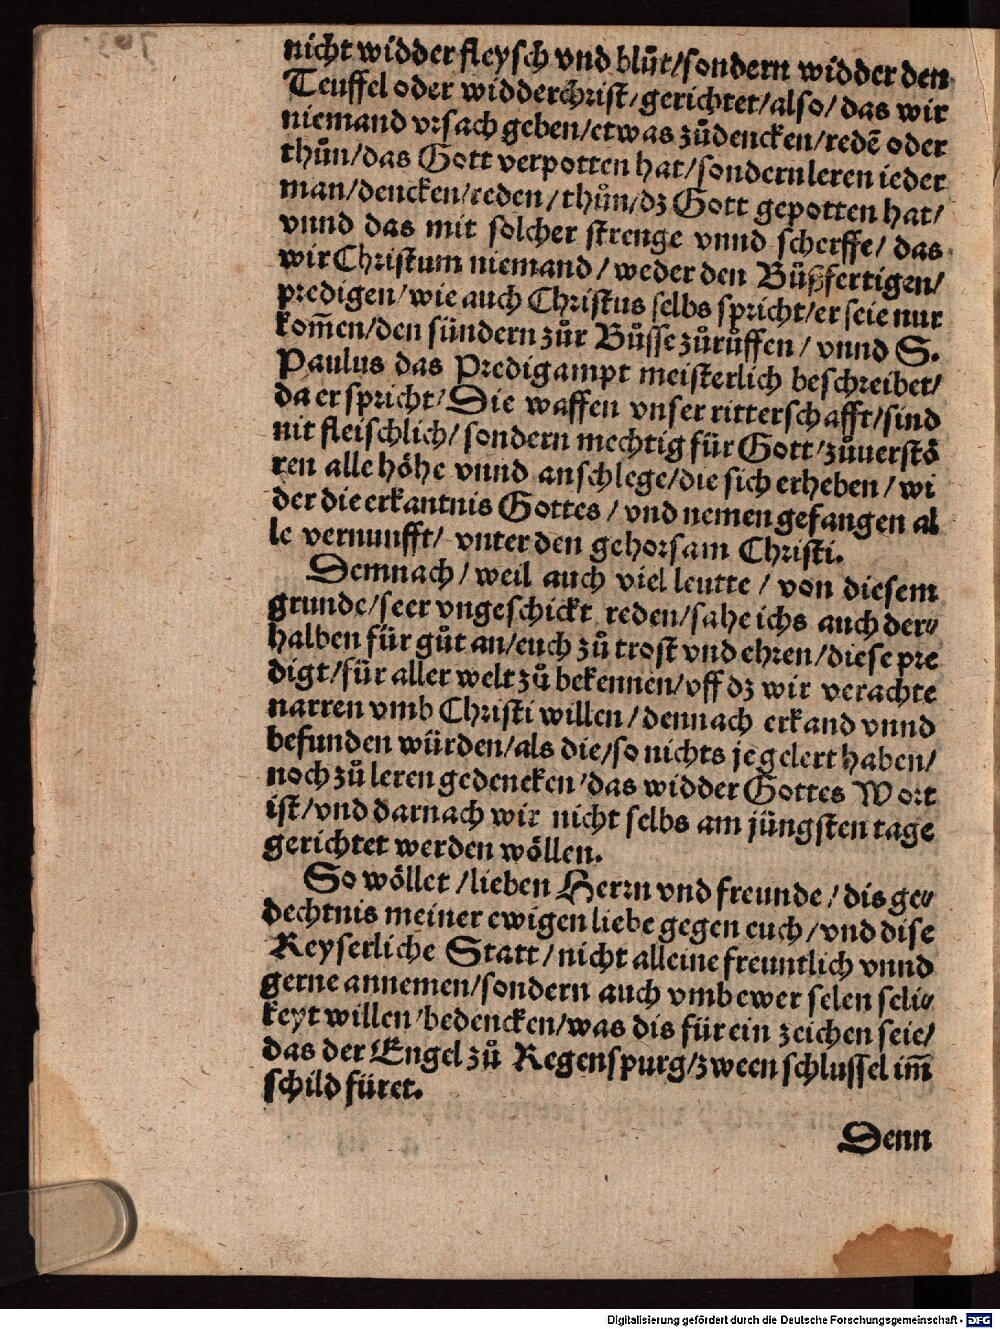 nicht widder fleysch vnd blůt/sondern widder den
Teuffel oder widderchrist/gerichtet/also/das wir
niemand vrsach geben/etwas zůdencken/redē oder
thůn/das Gott verpotten hat/sondern leren ieder
man/dencken/reden/thůn/dz Gott gepotten hat/
vnnd das mit solcher strenge vnnd scherffe/das
wir Christum niemand/weder den Bůßfertigen/
predigen/wie auch Christus selbs spricht/er seie nur
kom̃en/den sündern zůr Bůsse zůrůffen/vnnd S.
Paulus das Predigampt meisterlich beschreibet/
da er spricht/Die waffen vnser ritterschafft/sind
nit fleischlich/sondern mechtig für Gott/zůuerstö
ren alle höhe vnnd anschlege/die sich erheben/wi
der die erkantnis Gottes/vnd nemen gefangen al
le vernunfft/vnter den gehorsam Christi.
Demnach/weil auch viel leutte/von diesem
grunde/seer vngeschickt reden/sahe ichs auch der⸗
halben für gůt an/euch zů trost vnd ehren/diese pre
digt/für aller welt zů bekennen/vff dz wir verachte
narren vmb Christi willen/dennach erkand vnnd
befunden würden/als die/so nichts je gelert haben/
noch zů leren gedencken/das widder Gottes Wort
ist/vnd darnach wir nicht selbs am jüngsten tage
gerichtet werden wöllen.
So wöllet/lieben Herrn vnd freunde/dis ge⸗
dechtnis meiner ewigen liebe gegen euch/vnd dise
Keyserliche Statt/nicht alleine freuntlich vnnd
gerne annemen/sondern auch vmb ewer selen seli⸗
keyt willen/bedencken/was dis für ein zeichen seie/
das der Engel zů Regenspurg/zween schlussel im̃
schild füret.
Denn
Digitalisierung gefördert durch die Deutsche Forschungsgemeinschaft - DFG